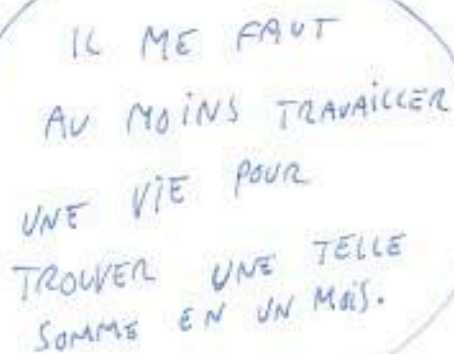 IL ME FAUT
AU MOINS TRAVAILLER
UNE VIE POUR
TROUVER UNE TELLE
SOMME EN UN MOIS.